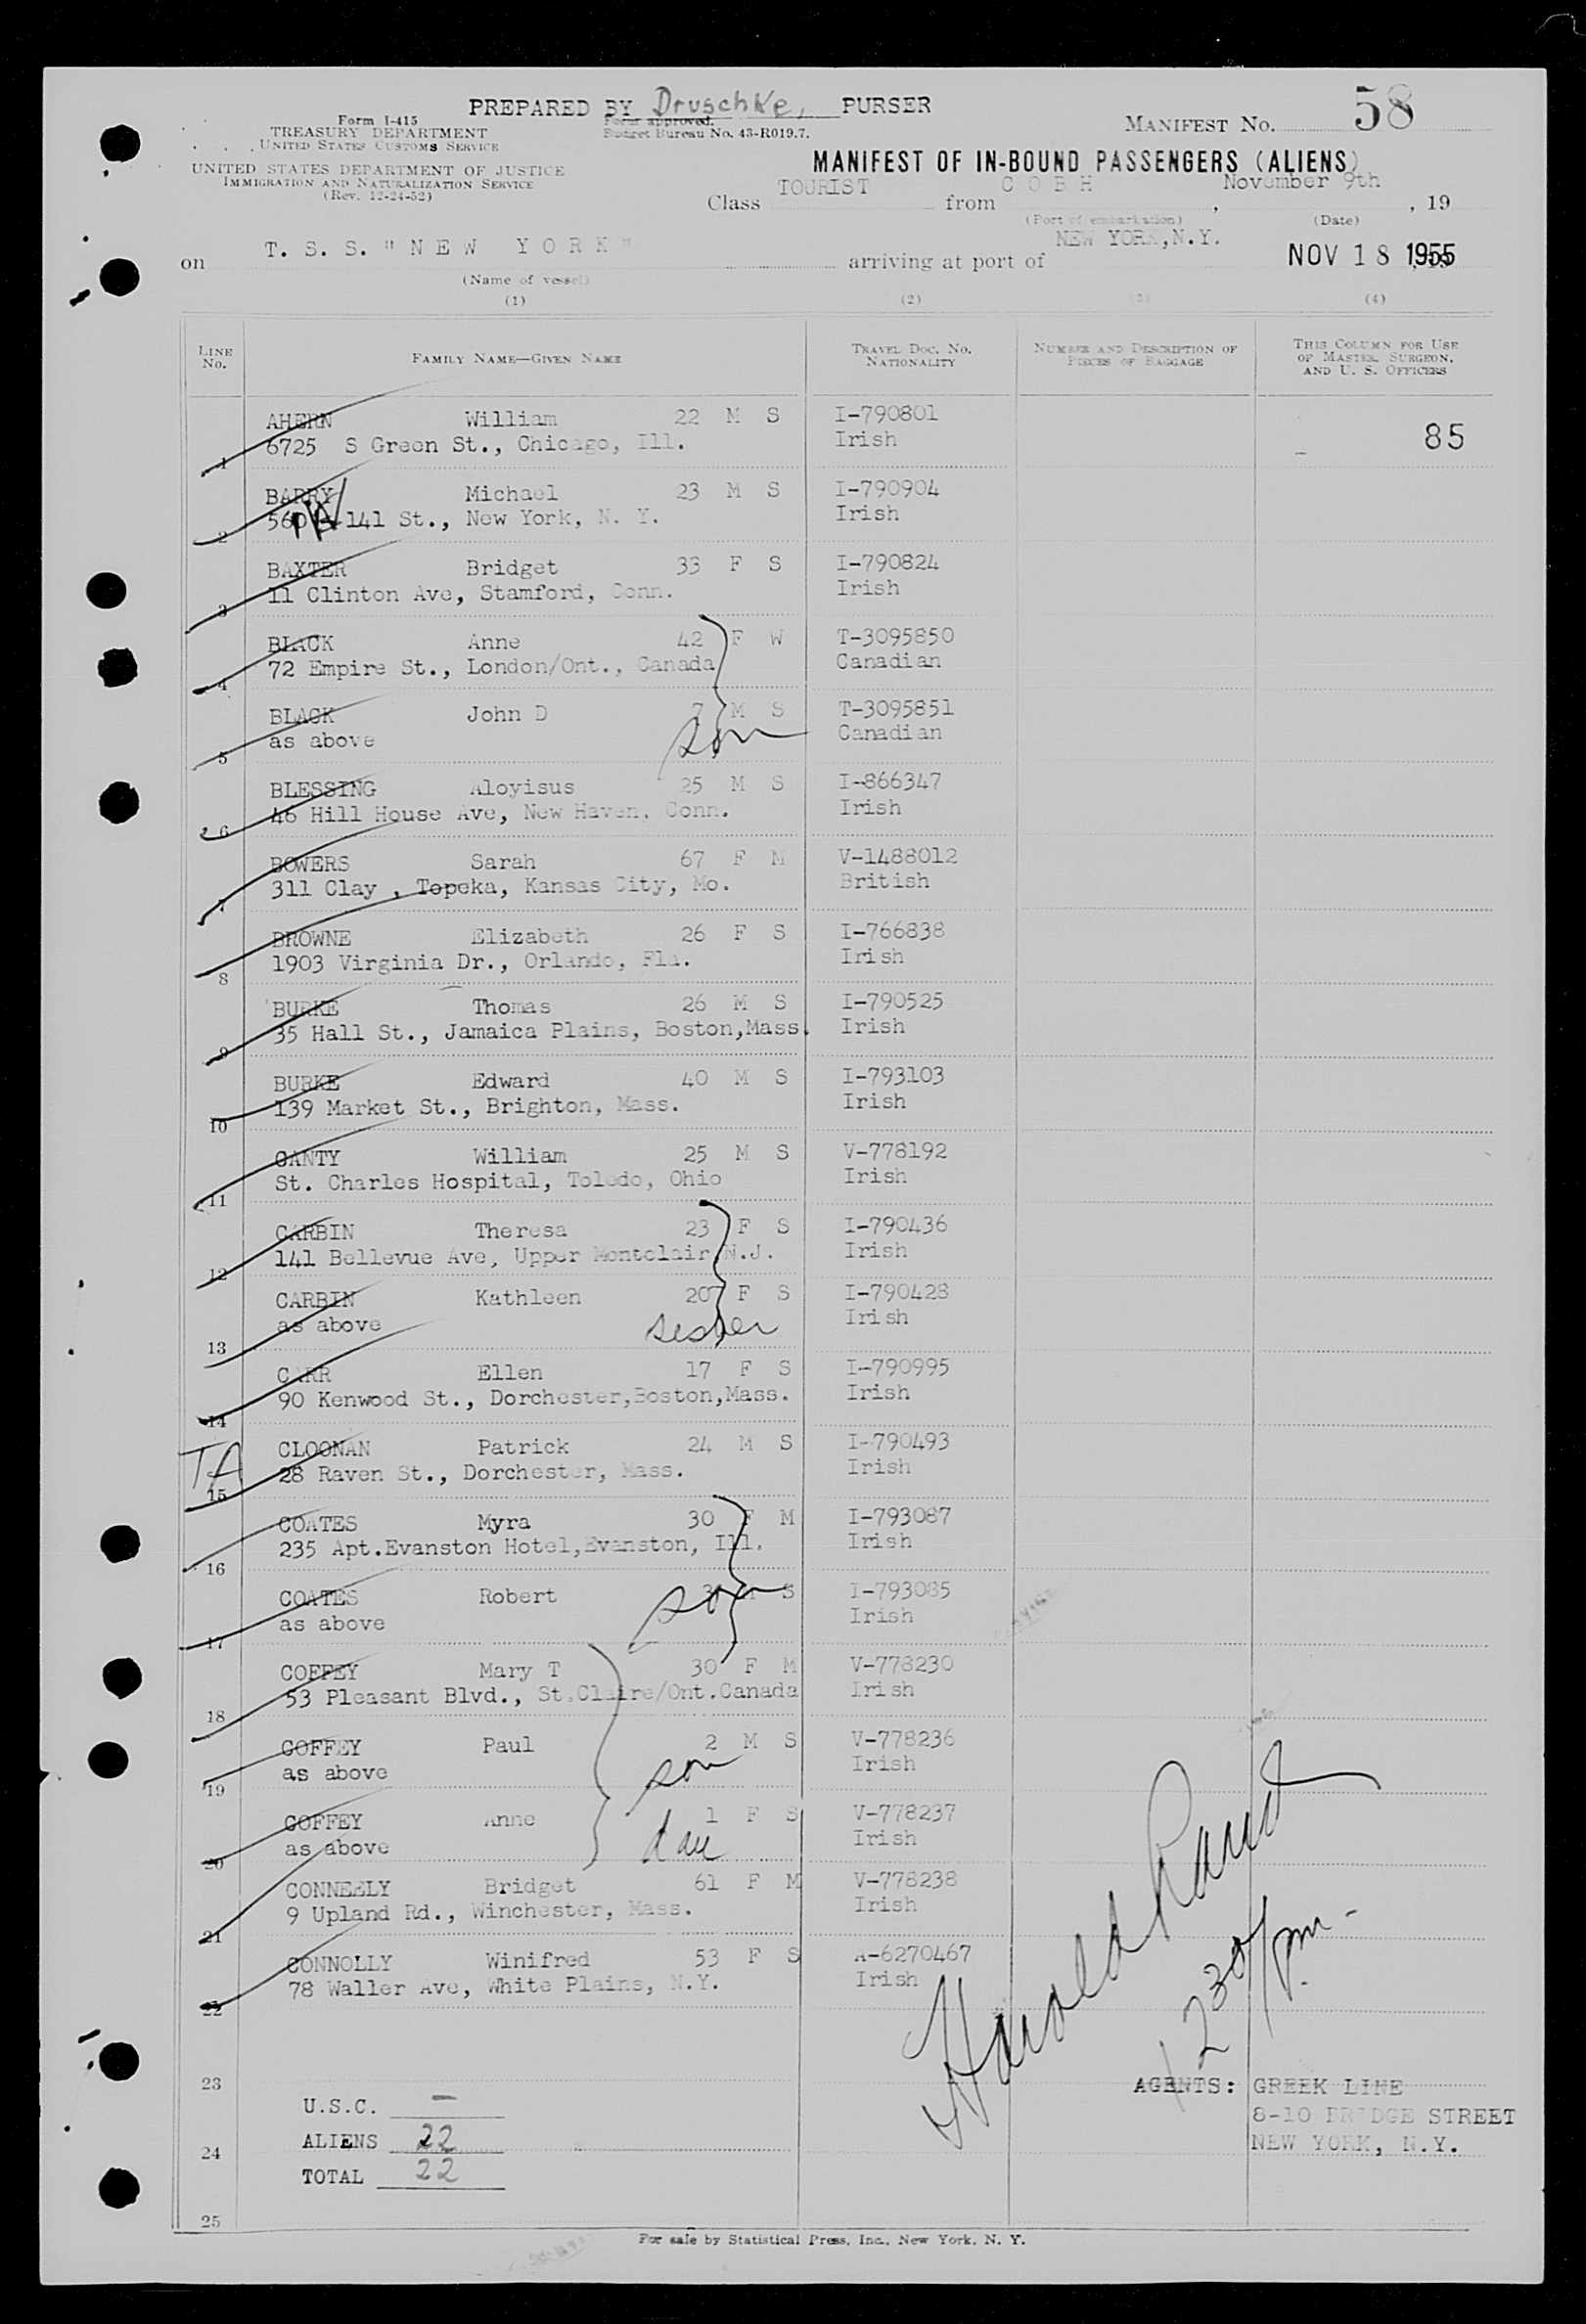 PREPARED BY Druschke, PURSER
58
Form I-415
TREASURY DEPARTMENT
UNITED STATES CUSTOMS SERVICE
Form approved.
Budget Bureau No. 43-R019.7.
MANIFEST No.
UNITED STATES DEPARTMENT OF JUSTICE
IMMIGRATION AND NATURALIZATION SERVICE
(Rev. 12-24-52)
MANIFEST OF IN-BOUND PASSENGERS (ALIENS)
Class TOURIST from COBH, November 9th, 19
(Port of embarkation) (Date)
on T. S. S. "NEW YORK" arriving at port of NEW YORK, N.Y. NOV 18 1955
(Name of vessel)
(1) (2) (3) (4)
LINE No. FAMILY NAME—GIVEN NAME TRAVEL DOC. NO. NATIONALITY NUMBER AND DESCRIPTION OF PIECES OF BAGGAGE THIS COLUMN FOR USE OF MASTER, SURGEON, AND U. S. OFFICERS
AHERN William 22 M S I-790801
1 6725 S Green St., Chicago, Ill. Irish 85
BARRY Michael 23 M S I-790904
2 560 W 141 St., New York, N. Y. Irish
BAXTER Bridget 33 F S I-790824
3 11 Clinton Ave, Stamford, Conn. Irish
BLACK Anne 42 F W T-3095850
4 72 Empire St., London/Ont., Canada Canadian
BLACK John D 7 M S T-3095851
5 as above son Canadian
BLESSING Aloyisus 25 M S I-866347
6 46 Hill House Ave, New Haven, Conn. Irish
BOWERS Sarah 67 F M V-1488012
7 311 Clay , Topeka, Kansas City, Mo. British
BROWNE Elizabeth 26 F S I-766838
8 1903 Virginia Dr., Orlando, Fla. Irish
BURKE Thomas 26 M S I-790525
9 35 Hall St., Jamaica Plains, Boston,Mass. Irish
BURKE Edward 40 M S I-793103
10 139 Market St., Brighton, Mass. Irish
CANTY William 25 M S V-778192
11 St. Charles Hospital, Toledo, Ohio Irish
CARBIN Theresa 23 F S I-790436
12 141 Bellevue Ave, Upper Montclair,N.J. Irish
CARBIN Kathleen 20 F S I-790428
13 as above sister Irish
CARR Ellen 17 F S I-790995
14 90 Kenwood St., Dorchester,Boston,Mass. Irish
TA CLOONAN Patrick 24 M S I-790493
15 28 Raven St., Dorchester, Mass. Irish
COATES Myra 30 F M I-793087
16 235 Apt.Evanston Hotel,Evanston, Ill. Irish
COATES Robert S I-793085
17 as above son Irish
COFFEY Mary T 30 F M V-778230
18 53 Pleasant Blvd., St.Claire/Ont.Canada Irish
COFFEY Paul 2 M S V-778236
19 as above son Irish
COFFEY Anne 1 F S V-778237
20 as above dau Irish
CONNEELY Bridget 61 F M V-778238
21 9 Upland Rd., Winchester, Mass. Irish
CONNOLLY Winifred 53 F S A-6270467
22 78 Waller Ave, White Plains, N.Y. Irish
Harold
1230/pm-
23
U.S.C. —
AGENTS: GREEK LINE
8-10 BRIDGE STREET
ALIENS 22
24
NEW YORK, N.Y.
TOTAL 22
25
For sale by Statistical Press, Inc., New York, N. Y.